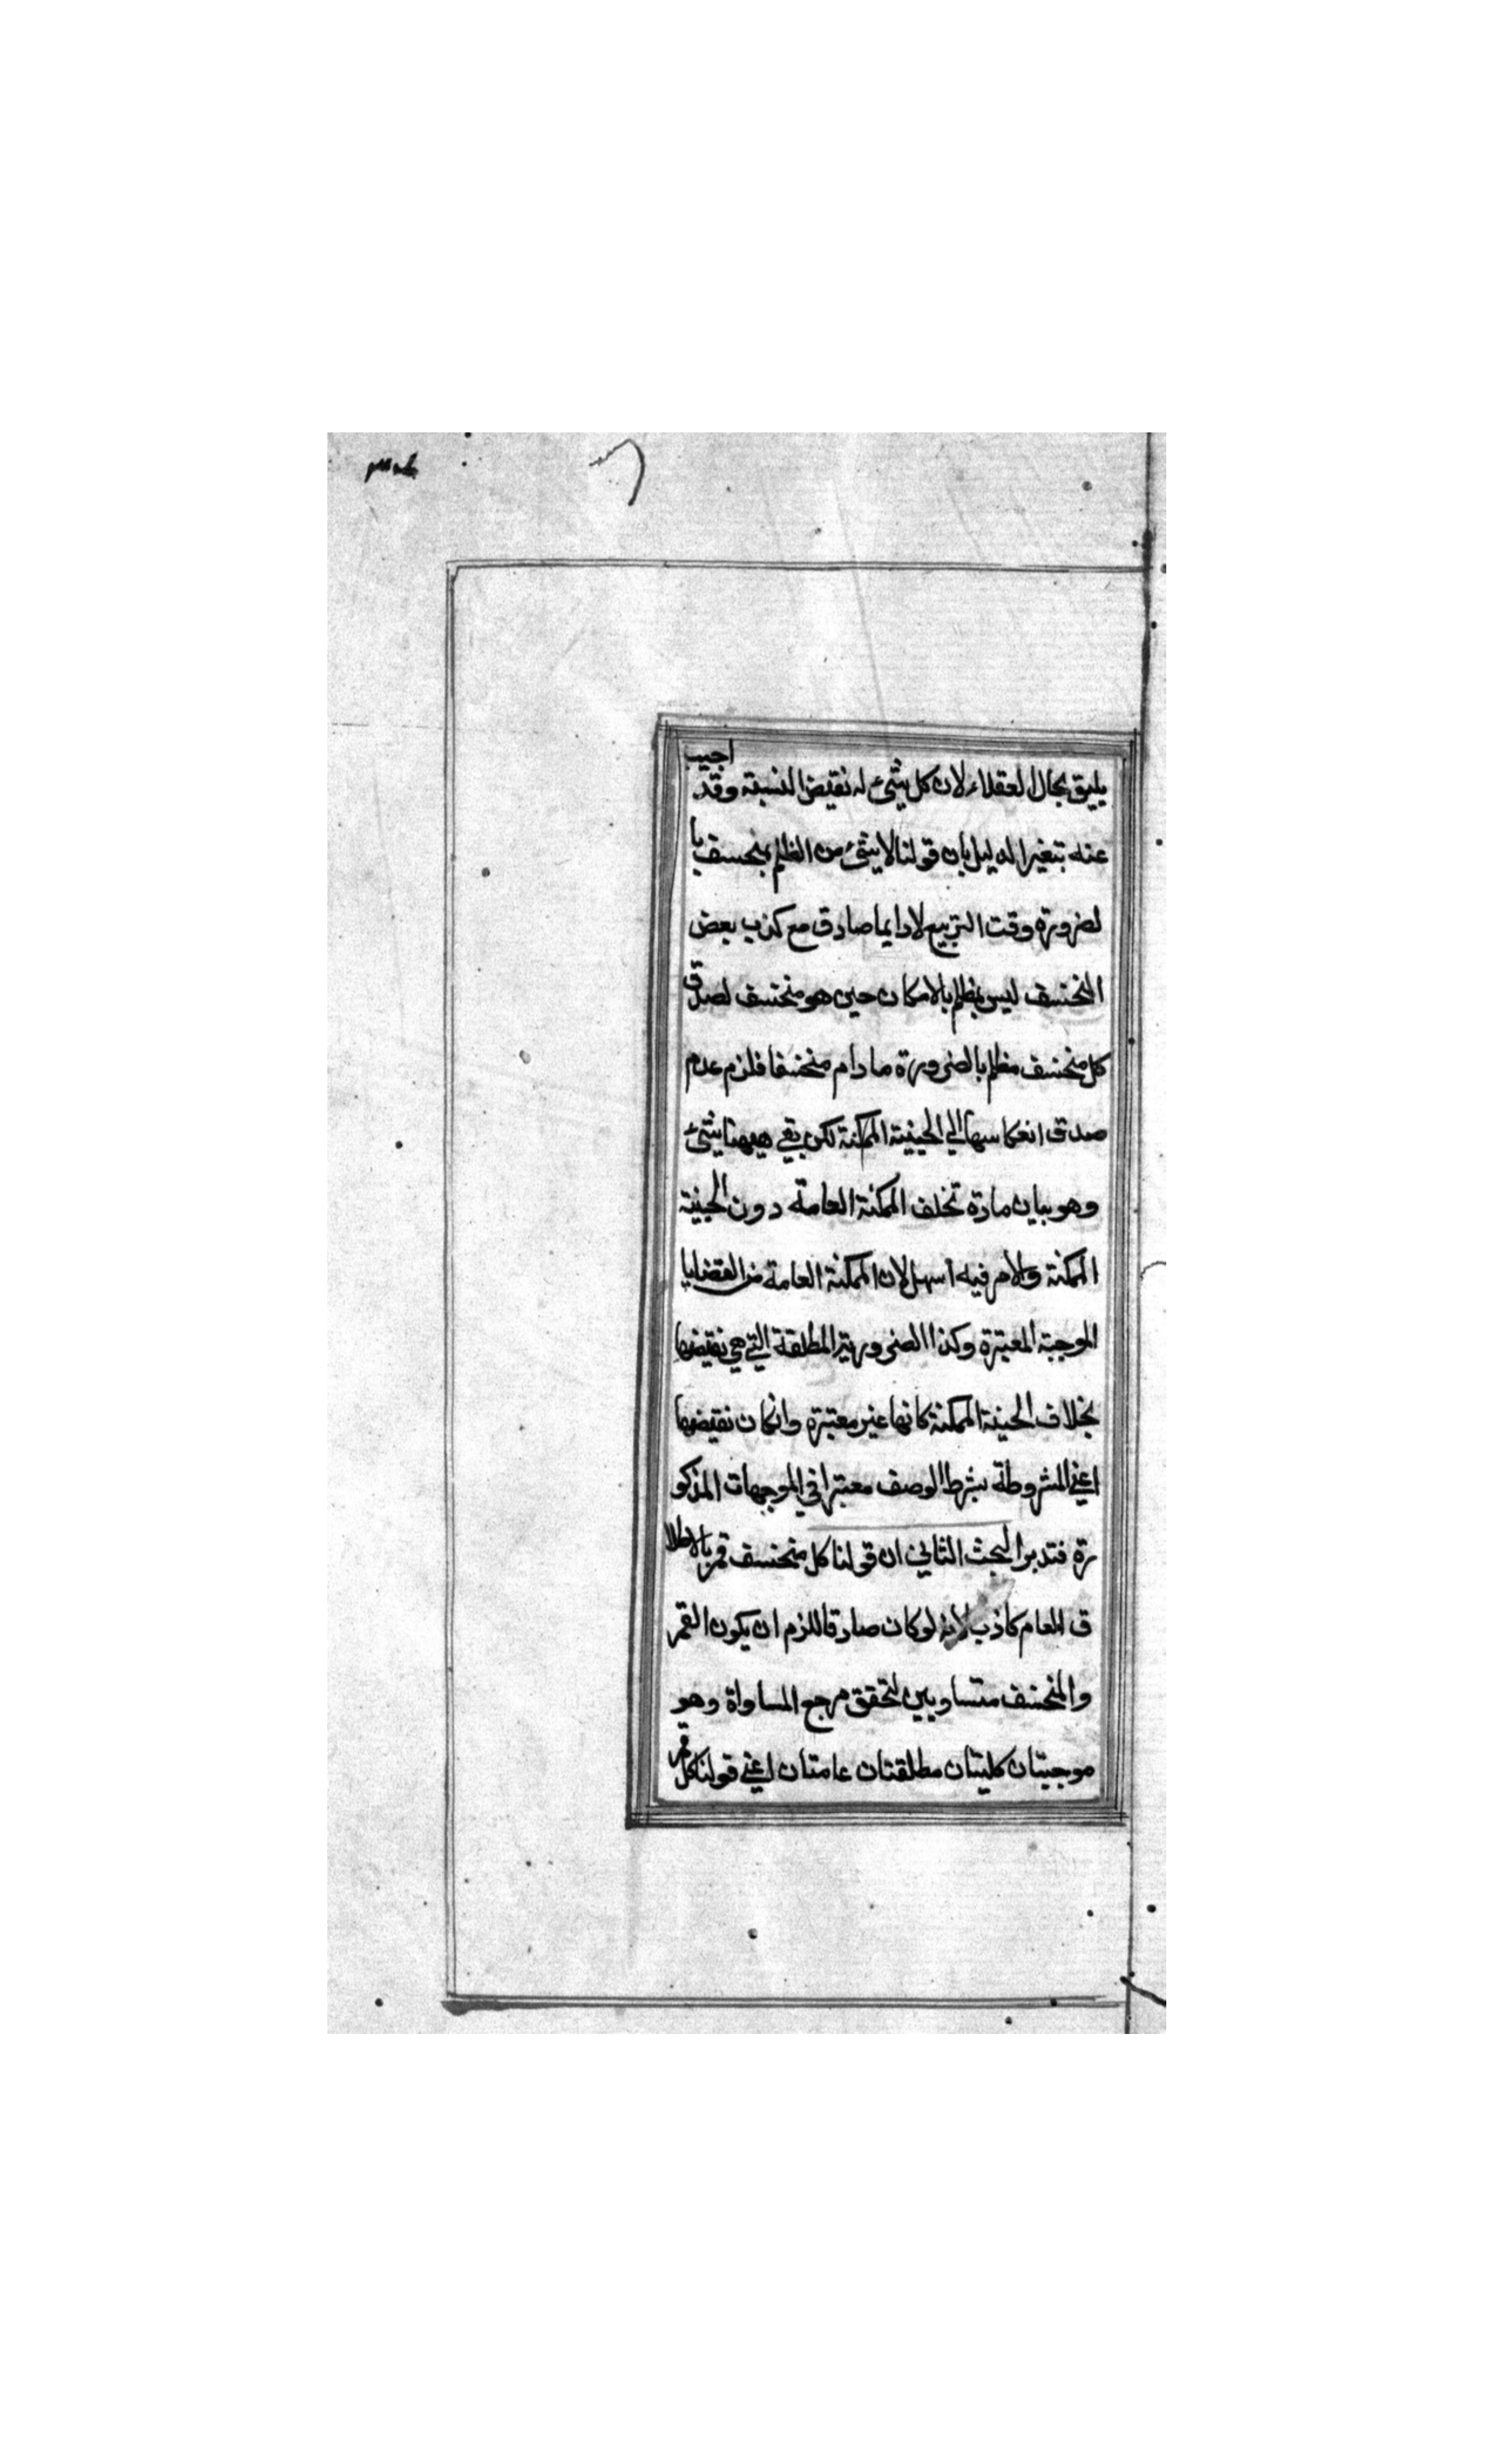 يليق بحال العقلاء لان كل شئ له نقيض النسبة وقد اجيب
عنه بتغير الدليل بان قولنا لا شئ من المظلم بمنخسف با
لضرورة وقت التربيع لا دايما صادق مع كذب بعض
المنخسف ليس بمظلم بالامكان حين هو منخسف لصدق
كل منخسف مظلم بالضرورة ما دام منخسفا فلزم عدم
صدق انعكاسها الي الحينية الممكنة لكن بقي ههنا شئ
وهو بيان مادة تخلف الممكنة العامة دون الحينية
الممكنة والامر فيه اسهل لان الممكنة العامة من القضايا
الموجبة المعتبرة وكذا الضرورية المطلقة التي هي نقيضها
بخلاف الحينة الممكنة كانها غير معتبرة وانكان نقيضها
اعني المشروطة بشرط الوصف معتبرا في الموجهات المذكو
رة فتدبر البحث الثاني ان قولنا كل منخسف قمر بالاطلا
ق العام كاذب لانه لو كان صادقا للزم ان يكون القمر
والمنخسف متساويين لتحقق مرجع المساواة وهو
موجبتان كليتان مطلقتان عامتان اعني قولنا كل قمر